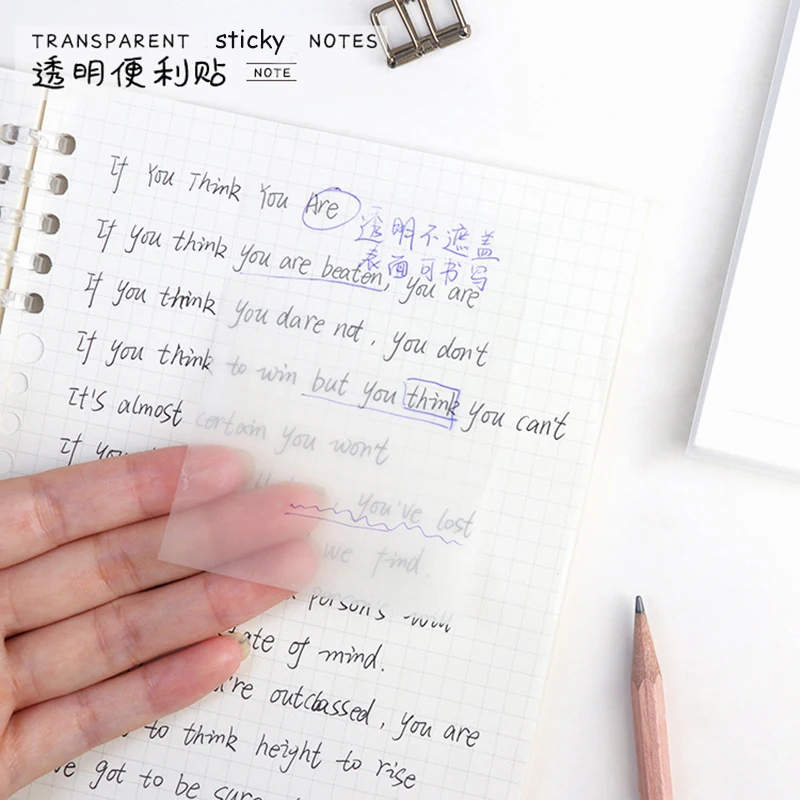 TRANSPARENT sticky NOTES
透明便利贴 NOTE
If You Think You Are
透明不遮盖
表面可书写
If you think you are beaten, you are
If you think you dare not, you don't
If you think to win but you think you can't
It's almost certain you won't
If
you've lost
we find.
person's will
state of mind.
you're outclassed, you are
to think height to rise
got to be sure